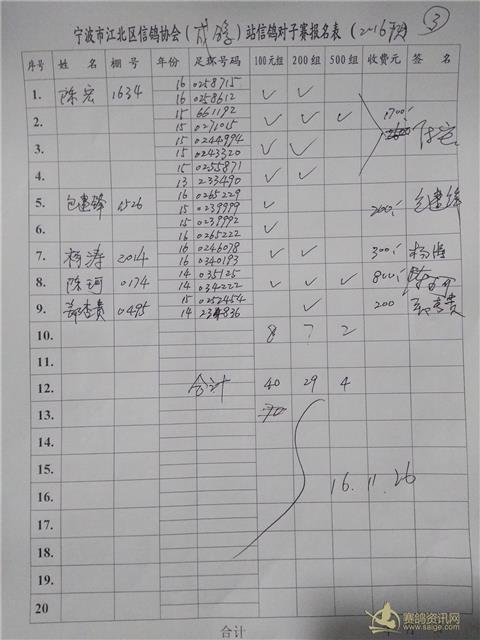 ③
宁波市江北区信鸽协会(成锋)站信鸽对子赛报名表(2016
序号 姓 名 棚 号 年份 足环号码 100元组 200组 500组 收费元 签 名
1. 陈宏 1634 16 0258715 ✓ ✓
16 0258612
2. 15 661192 ✓ ✓ ✓ 1700.- 陈宏
15 0271015
3. 15 0244994 ✓ ✓
15 0243320
4. 15 0255871 ✓ ✓
13 233490
5. 包建锋 1526 16 0265229 ✓ 200.- 包建锋
15 0239999
6. 15 0239992 ✓
16 0265222
7. 杨涛 2014 16 0246078 ✓ ✓ 300.- 杨涛
16 0340193
8. 陈珂 0174 14 035125 ✓ ✓ ✓ 800.-
14 034222
9. 0495 15 0252454 ✓ 200
14 234836
10. 8 7 2
11.
12. 合计 40 29 4
13.
14.
15.
16. 16.11.26
17.
18.
19.
20
合计
赛鸽资讯网
www.saige.com